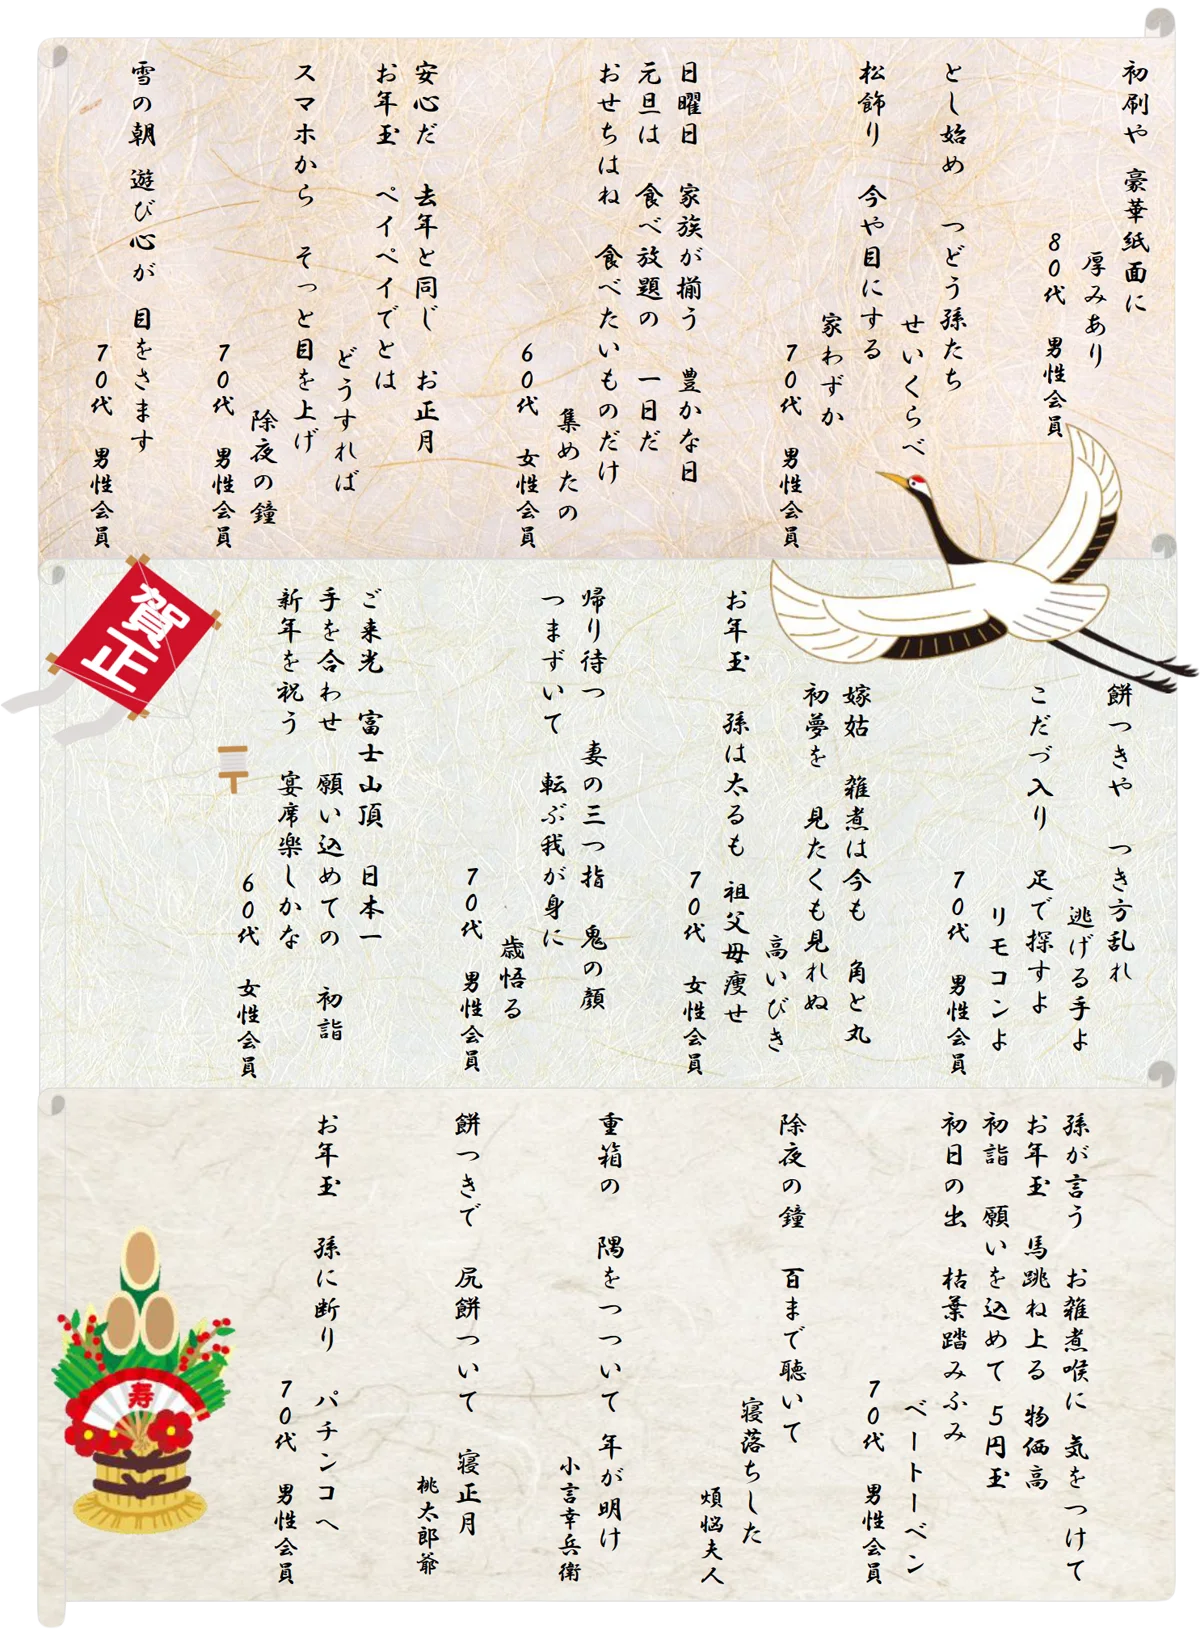 初刷や 豪華紙面に
厚みあり
80代 男性会員
とし始め つどう孫たち
せいくらべ
松飾り 今や目にする
家わずか
70代 男性会員
日曜日 家族が揃う 豊かな日
元旦は 食べ放題の 一日だ
おせちはね 食べたいものだけ
集めたの
60代 女性会員
安心だ 去年と同じ お正月
お年玉 ペイペイでとは
どうすれば
スマホから そっと目を上げ
除夜の鐘
70代 男性会員
雪の朝 遊び心が 目をさます
70代 男性会員
賀正
餅つきや つき方乱れ
逃げる手よ
こだづ入り 足で探すよ
リモコンよ
70代 男性会員
嫁姑 雑煮は今も 角と丸
初夢を 見たくも見れぬ
高いびき
お年玉 孫は太るも 祖父母痩せ
70代 女性会員
帰り待つ 妻の三つ指 鬼の顔
つまずいて 転ぶ我が身に
歳悟る
70代 男性会員
ご来光 富士山頂 日本一
手を合わせ 願い込めての 初詣
新年を祝う 宴席楽しかな
60代 女性会員
孫が言う お雑煮喉に 気をつけて
お年玉 馬跳ね上る 物価高
初詣 願いを込めて 5円玉
初日の出 枯葉踏みふみ
ベートーベン
70代 男性会員
除夜の鐘 百まで聴いて
寝落ちした
煩悩夫人
重箱の 隅をつついて 年が明け
小言幸兵衛
餅つきで 尻餅ついて 寝正月
桃太郎爺
お年玉 孫に断り パチンコへ
70代 男性会員
寿